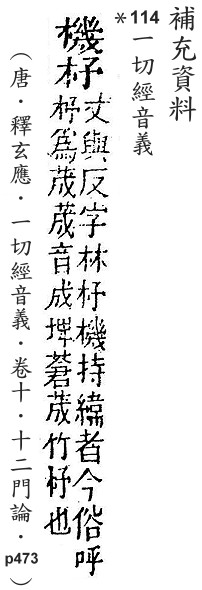 補充資料
*114 一切經音義
機杼
丈與反字林杼機持緯者今俗呼
杼為荿荿音成埤蒼荿竹杼也
（唐．釋玄應．一切經音義．卷十．十二門論．p473）